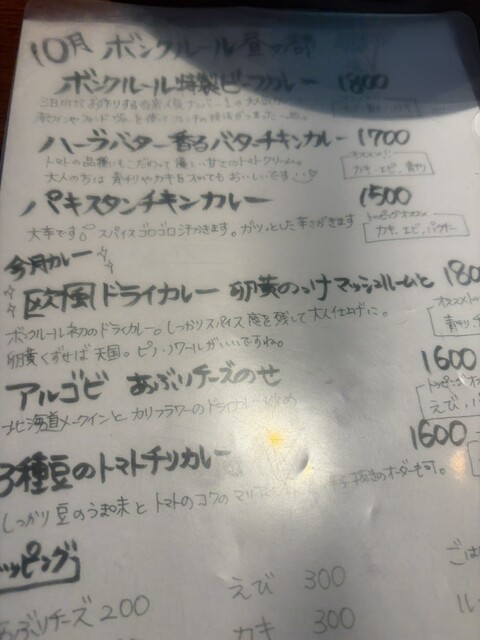 10月 ボンクルール 昼の部
ボンクルール特製ビーフカレー 1800
3日かけてお作りする当店人気ナンバー1の大人の
ハーブバター香るバターチキンカレー 1700
トマトの品種にもこだわって優しい甘さのトマトクリーム。 オススメ
大人の方は青チリやカキを入れてもおいしいです カキ、エビ、青チリ
パキスタンチキンカレー 1500
大辛です。スパイスゴロゴロ汗かきます。ガツッとした辛さがきます トッピングオススメ
カキ、エビ、パクチー
今月カレー
欧風ドライカレー 卵黄のっけマッシュルームと 180
ボンクルール初のドライカレー。しっかりスパイス感を残して大人仕上げに。
卵黄くずせば天国。ピノ・ノワールがいいですね。 青チリ、チ
アルゴビ あぶりチーズのせ 1600
北海道メークインとカリフラワーのドライカレー えび、
3種豆のトマトチリカレー 1600
しっかり豆のうま味とトマトのコクの 抜きのオーダーも可。
ッピング
えび 300 ごは
あぶりチーズ 200
カキ 300